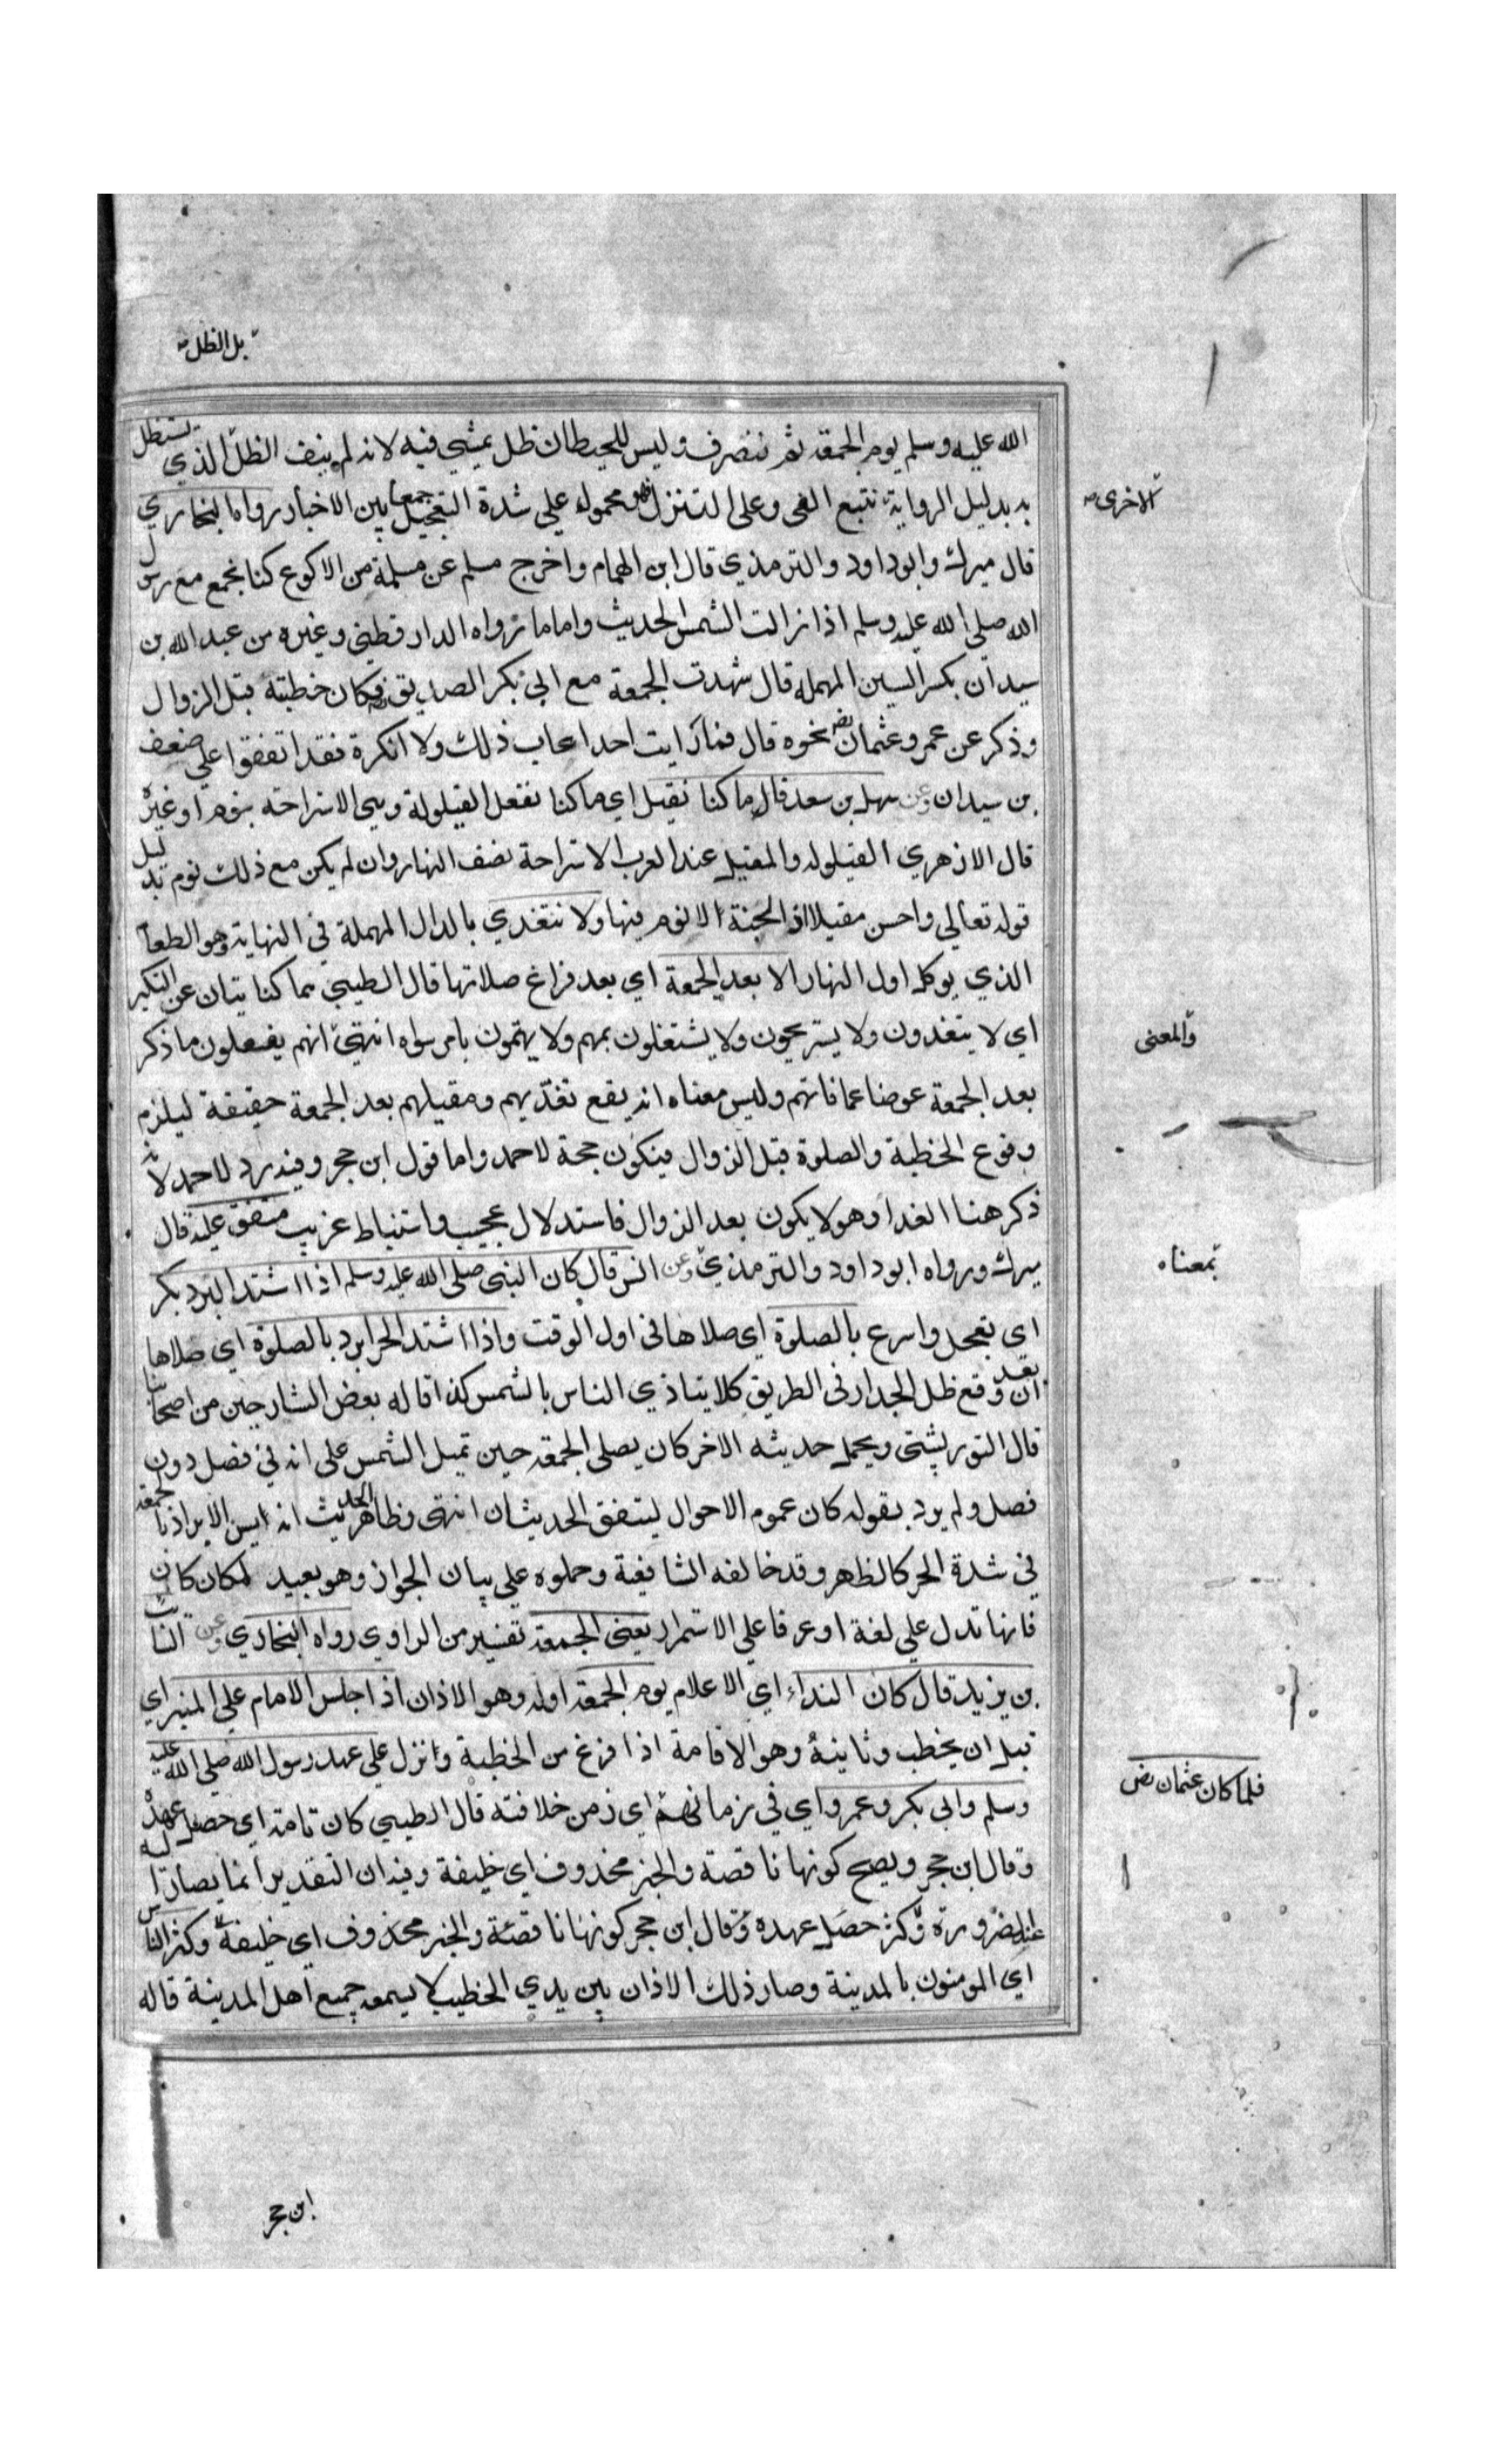 بل الظل
الله عليه وسلم يوم الجمعة ثم ننصرف وليس للحيطان ظل يمشي فيه لانه لم ينف الظل الذي يستظل
به بدليل الرواية نتتبع الفى وعلى التنزل فهو محمول على شدة التعجيل جمعا بين الاخبار رواه البخاري
الاخرى
قال ميرك وابو داود والترمذي قال ابن الهمام واخرج مسلم عن مسلمة من الاكوع كنا نجمع مع رسول
الله صلى الله عليه وسلم اذا زالت الشمس الحديث واما ما رواه الدار قطني وغيره من عبد الله بن
سيدان بكسر السين المهملة قال شهدت الجمعة مع ابي بكر الصديق رض فكان خطبته قبل الزوال
وذكر عن عمر وعثمان رض نحوه قال فما رايت احدا عاب ذلك ولا انكره فقد اتفقوا على ضعف
بن سيدان وعن سهل بن سعد قال ما كنا نقيل اي ما كنا نفعل القيلولة وهي الاستراحة بنوم او غيره
قال الازهري القيلوله والمقيل عند العرب الاستراحة نصف النهار وان لم يكن مع ذلك نوم بدليل
قوله تعالى واحسن مقيلا اذ الجنة لا نوم فيها ولا نتغدي بالدال المهملة في النهاية وهو الطعام
الذي يوكل اول النهار الا بعد الجمعة اي بعد فراغ صلاتها قال الطيبي هما كنايتان عن التبكير
اي لا يتغدون ولا يستريحون ولا يشتغلون بمهم ولا يهتمون بامر سواه انتهى انهم يفعلون ما ذكر
والمعنى
بعد الجمعة عوضا عما فاتهم وليس معناه انه يقع تغديهم ومقيلهم بعد الجمعة حقيقة ليلزم
وقوع الخطبة والصلوة قبل الزوال فيكون حجة لاحمد واما قول ابن حجر وفيه رد لاحمد لانه
ذكر هنا الغدا وهو لا يكون بعد الزوال فاستدلال عجيب واستنباط غريب متفق عليه قال
ميرك ورواه ابو داود والترمذي وعن انس قال كان النبى صلى الله عليه وسلم اذا اشتد البرد بكر
بمعناه
اي تعجل واسرع بالصلوة اي صلاها فى اول الوقت واذا اشتد الحر ابرد بالصلوة اي صلاها
بعد ان وقع ظل الجدار فى الطريق كلا يتاذي الناس بالشمس كذا قاله بعض الشارحين من اصحابنا
قال التوربشتي ويحمل حديثه الاخر كان يصلى الجمعة حين تميل الشمس على انه في فصل دون
فصل ولم يرد بقوله كان عموم الاحوال ليتفق الحديثان انتهى وظاهر الحديث انه يسن الابراد بالجمعة
في شدة الحر كالظهر وقد خالفه الشافعية وحملوه على بيان الجواز وهو بعيد لمكان كان
فانها تدل على لغة او عرفا على الاستمرار يعنى الجمعة تفسير من الراوي رواه البخاري وعن السائب
بن يزيد قال كان النداء اي الاعلام يوم الجمعة اوله وهو الاذان اذا جلس الامام على المنبر اي
قبل ان يخطب وثانيه وهو الاقامة اذا فرغ من الخطبة وانزل على عهد رسول الله صلى الله عليه
وسلم وابى بكر وعمر واي في زمانهما اي زمن خلافته قال الطيبي كان تامة اي حصل عهده
فلما كان عثمان رض
وقال ابن حجر ويصح كونها ناقصة والخبر محذوف اي خليفة وفيه ان التقدير انما يصار اليه
عند الضرورة وكثر حصل عهده وقال ابن حجر كونها ناقصة والخبر محذوف اي خليفة وكثر الناس
اي المومنون بالمدينة وصار ذلك الاذان بين يدي الخطيب لا يسمعه جميع اهل المدينة قاله
ابن حجر